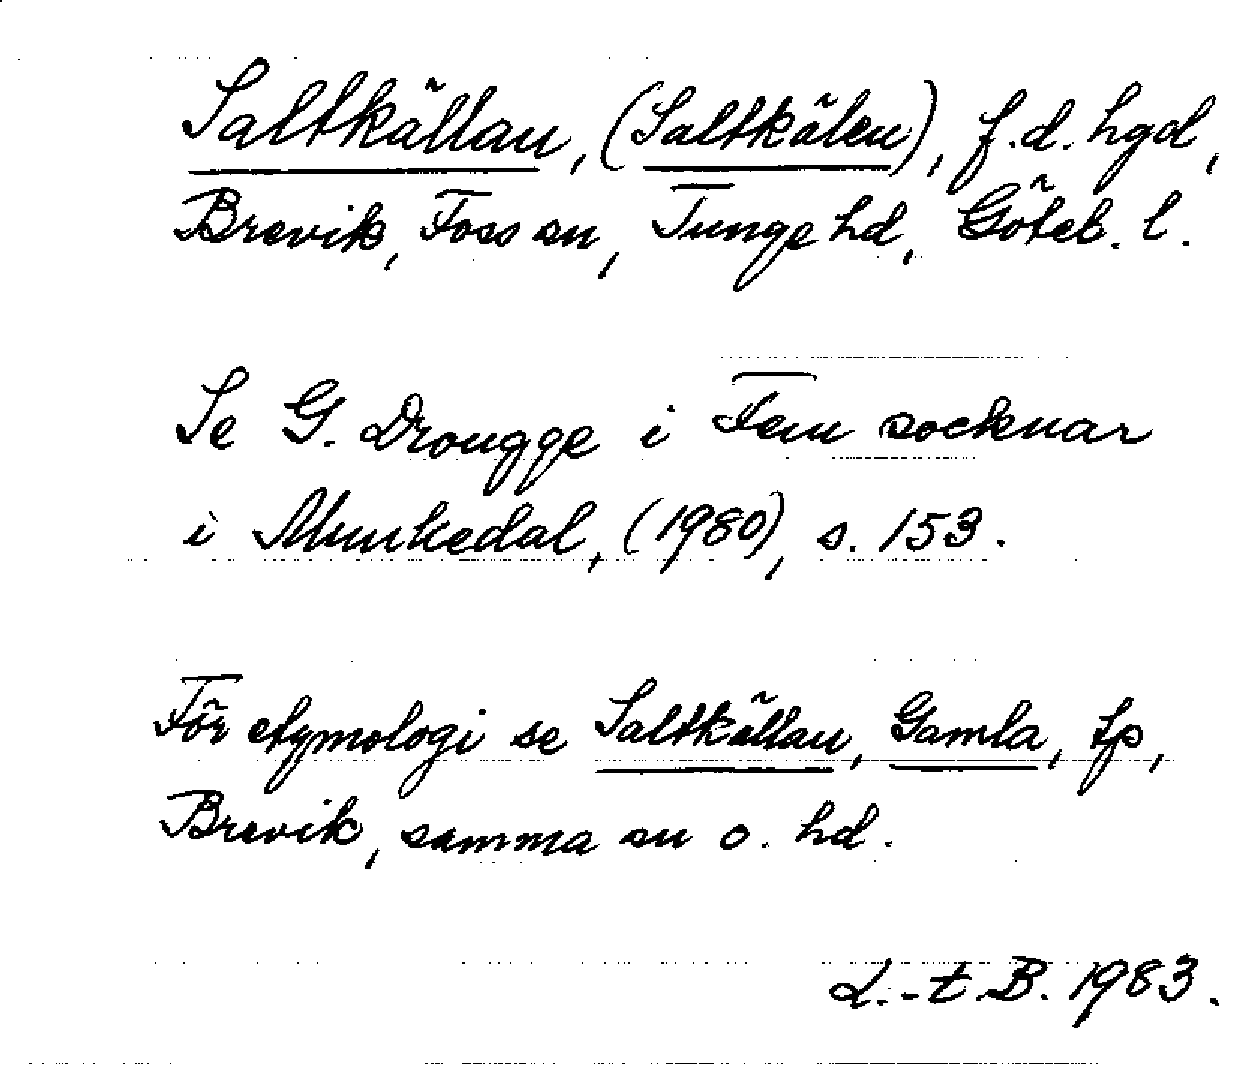 Saltkällan, (Saltkälen), f.d. hgd,
Brevik, Foss sn, Tunge hd, Göteb. l.
Se G. Drougge i Fem socknar
i Munkedal, (1980), s. 153.
För etymologi se Saltkällan, Gamla, tp,
Brevik, samma sn o. hd.
L.-t.B. 1983.